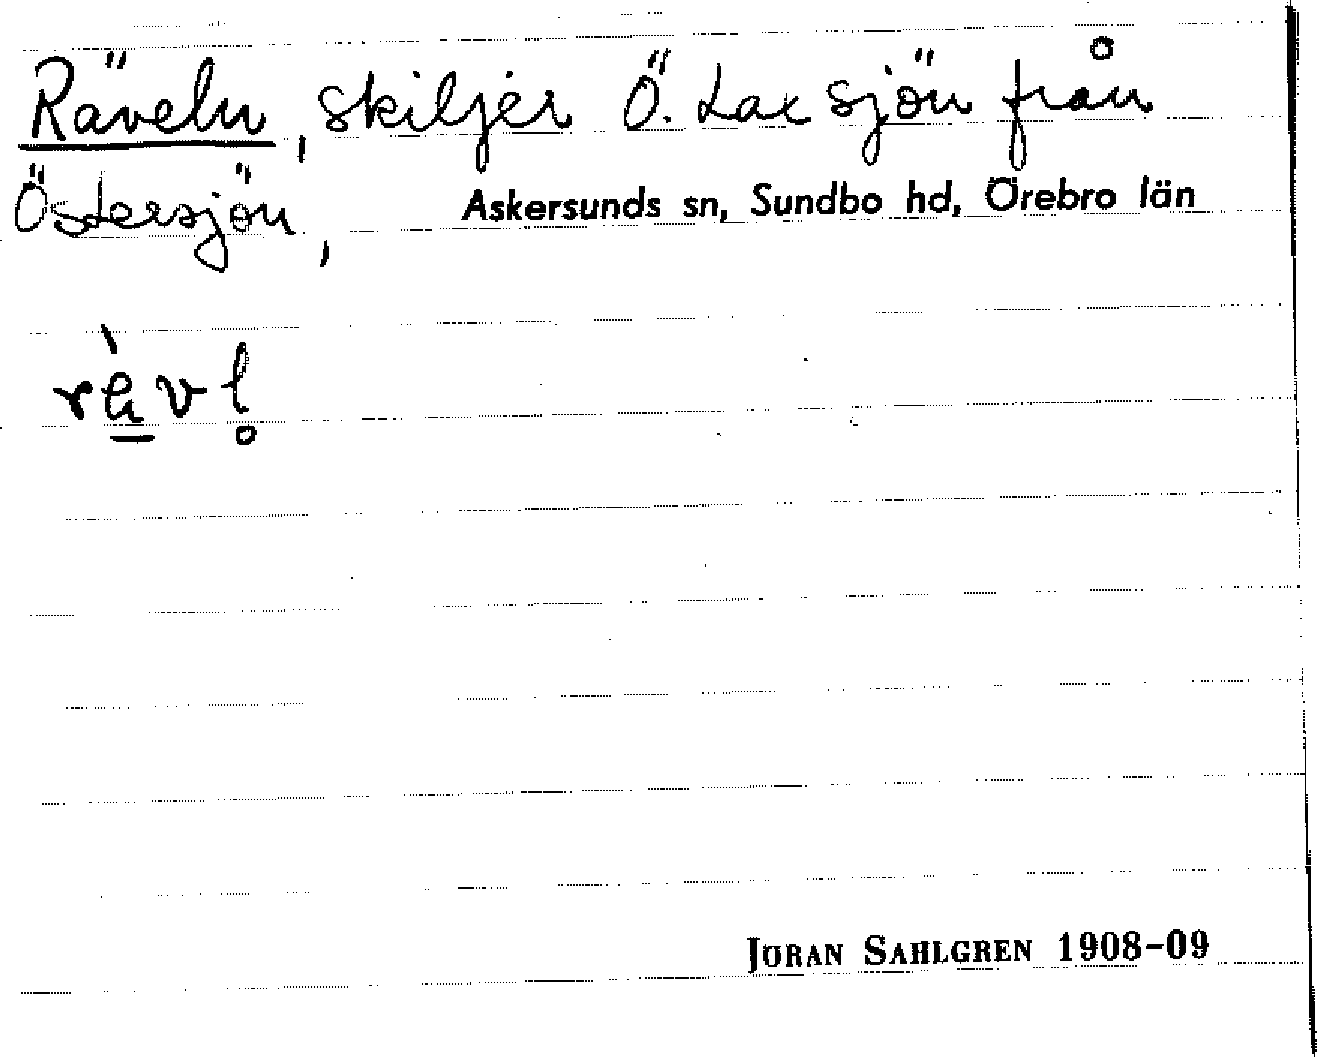 Räveln, skiljer Ö. Laxsjön från
Östersjön, Askersunds sn, Sundbo hd, Örebro län
JÖRAN SAHLGREN 1908–09